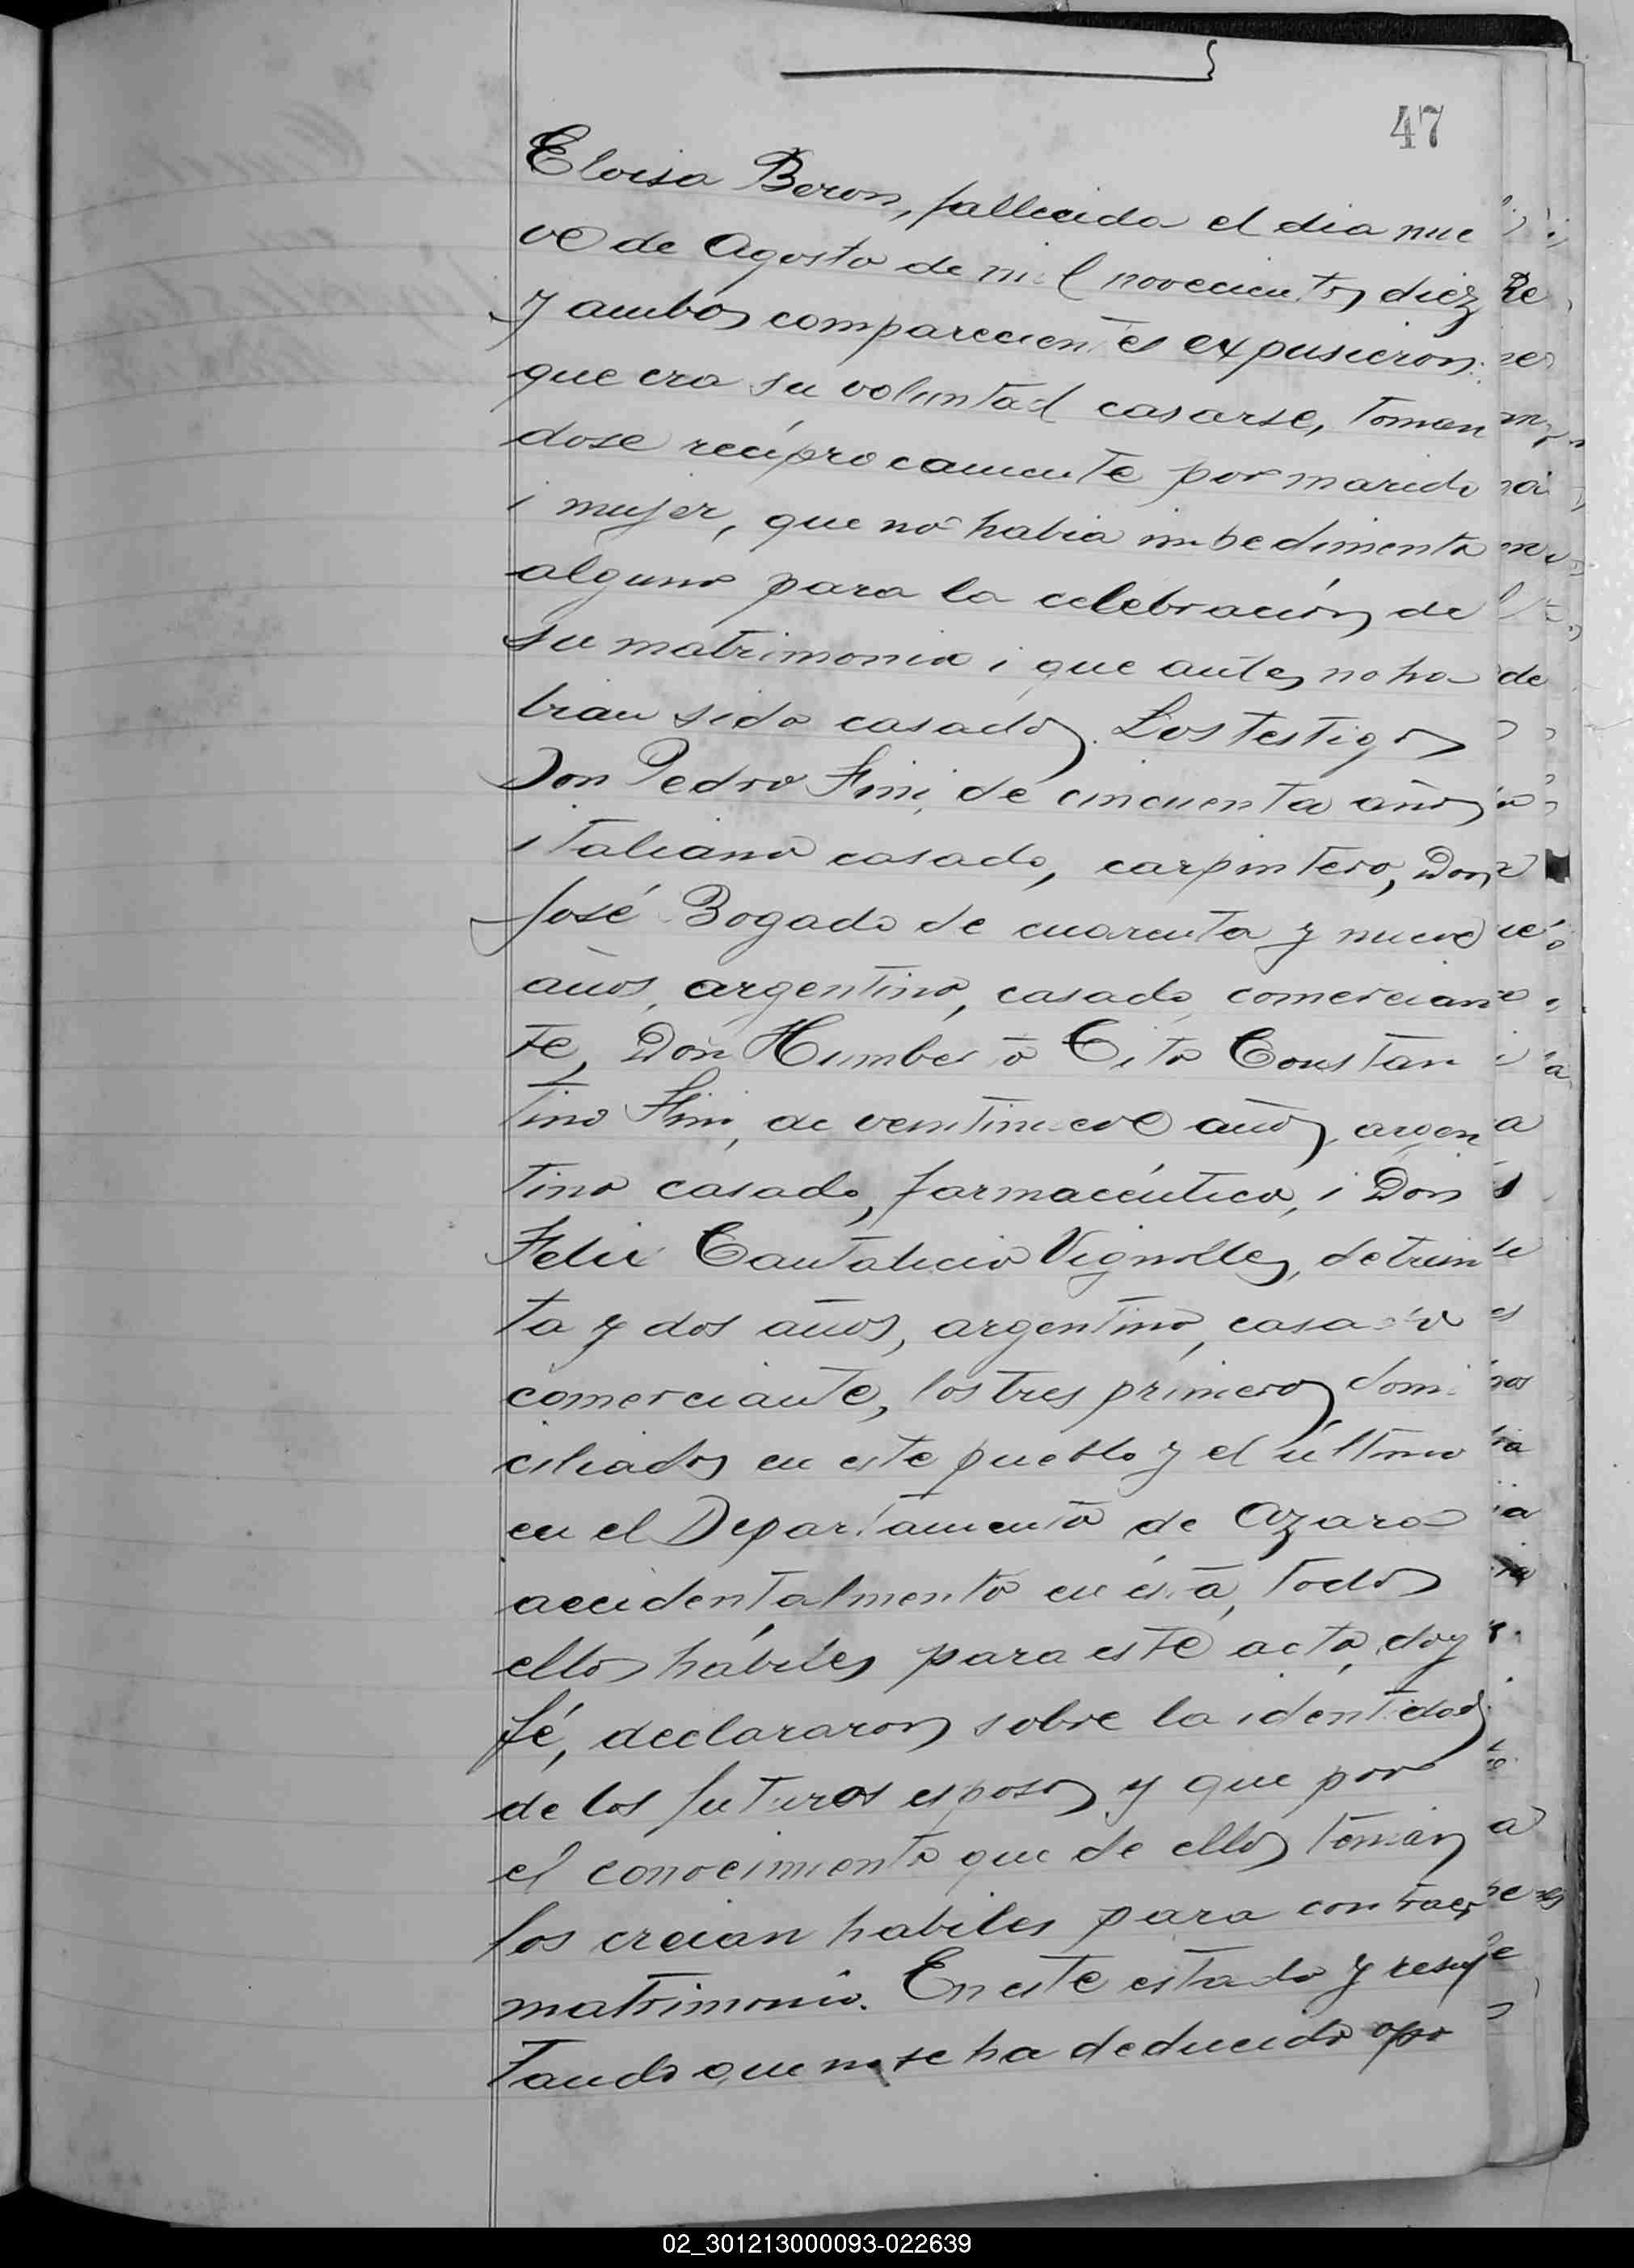 47
Eloisa Beron, fallecida el dia nue
ve de Agosto de mil novecientos diez
y ambos comparecientes expusieron:
que era su voluntad casarse, toman
dose recíprocamente por marido
i mujer, que no habia impedimento
alguno para la celebración de
su matrimonio i que antes no ha
bian sido casados. Los testigos
Don Pedro Fini, de cincuenta años
italiano casado, carpintero, Don
José Bogado de cuarenta y nueve
años, argentino, casado, comercian
te, Don Humberto Tito Constan
tino Fini, de veintinueve años, argen
tino casado, farmacéutico, i Don
Felix Cantalicio Vignolles, de trein
ta y dos años, argentino, casado
comerciante, los tres primeros domi
ciliados en este pueblo y el último
en el Departamento de Azara
accidentalmente en ésta, todos
ellos hábiles para este acto, doy
fé, declararon sobre la identidad
de los futuros esposos y que por
el conocimiento que de ellos tenian
los creian habiles para contraer
matrimonio. En este estado y resul
tando que no se ha deducido opo
02_301213000093-022639